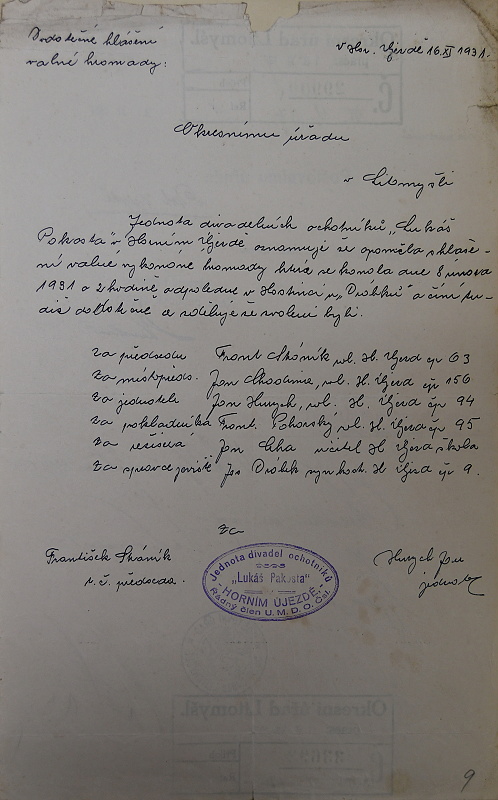 Dodatečné hlášení
valné hromady:
V Hor. Újezdě 16. XI 1931.
Okresnímu úřadu
v Litomyšli
Jednota divadelních ochotníků „Lukáš
Pakosta" v Horním Újezdě oznamuje že opoměla hláše-
ní valné výkonné hromady která se konala dne 8 února
1931 o 2 hodině odpoledne v Hostinci u „Drábků" a činí tu-
díž dodatečně a sděluje že zvoleni byli.
Za předsedu Frant. Skásník, rol. H. Újezd čp 63
Za místopředs. Jan, rol. H. Újezd čp 156
Za jednatele Jan Hnych, rol. H. Újezd čp 94
Za pokladníka Frant. Pohorský rol. H. Újezd čp 95
Za režiséra Jan učitel H Újezd škola
Za správce jeviště Jan Drábek syn host. H Újezd čp 9.
Za
František Skásník
t. č. předseda.
Jednota divadel. ochotníků
„Lukáš Pakosta"
HORNÍM ÚJEZDĚ.
Řádný člen U. M. D. O. Čsl.
Hnych Jan
jednatel
Okresní úřad Litomyšl.
Okresní úřad Litomyšl.
9